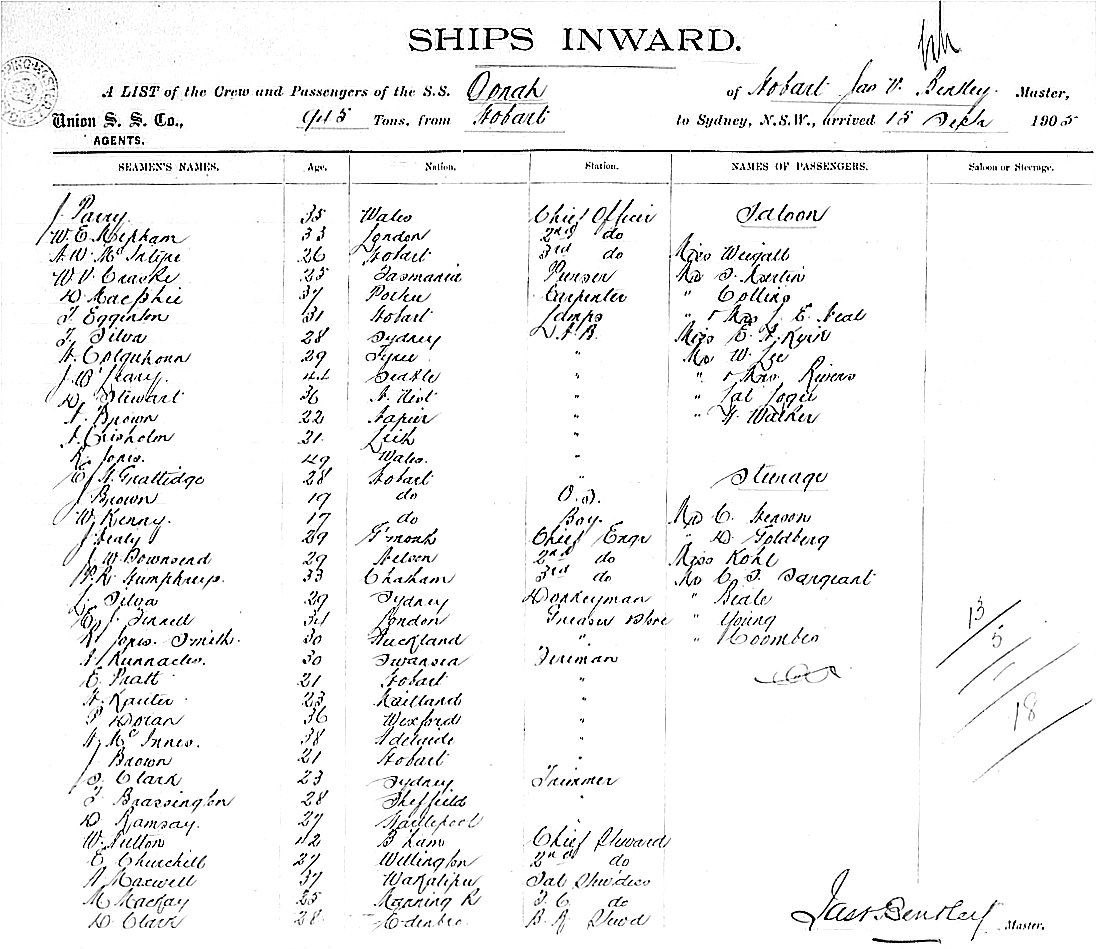 SHIPS INWARD.
A LIST of the Crew and Passengers of the S.S. Oonah of Hobart Jas W. Bentley. Master,
Union S. S. Co., 945 Tons, from Hobart to Sydney, N.S.W., arrived 15 Sept 1905
AGENTS.
SEAMEN'S NAMES. Age. Nation. Station. NAMES OF PASSENGERS. Saloon or Steerage.
J. Parry. 35 Wales Chief Officer Saloon
W. E. Mepham 33 London 2nd do
A. W. McIntyre 26 Hobart 3rd do Miss Weigall
W. V. Craske 25 Tasmania Purser Mr J. Martin
D. MacPhie 37 Carpenter " Collins
T. Egginton 31 Hobart Lamps " & Mrs J. E. Neal
T. Silva 28 Sydney A.B. Miss E. A. Keir
A. Colquhoun 29 Tyree " Mr W. Lee
J. W. Leary. 44 Seattle " " & Mrs. Rivers
D. Stewart 36 N. Uist " " Logie
A. Brown 22 Napier " " A. Walker
A. Chisholm 21 Leith "
R. Jones. 49 Wales. "
E. A. Grattidge 28 Hobart " Steerage
J. Brown 19 do O.S.
W. Kenny. 17 do Boy. Mr C. Henson
J. Healy 29 G'mouth Chief Engr " D. Goldberg
J. W. Townsend 29 Nelson 2nd do Miss Kohl
P. R. Humphreys. 33 Chatham 3rd do Mr C. J. Sargeant
L. Silva 29 Sydney Donkeyman " Beale
E. J. Finnell 34 London Greaser & Store " Young
R. Jones. Smith. 30 Auckland " " Coombes
A. Runnacles. 30 Swansea Fireman
E. Pratt 21 Hobart "
A. Kauter 23 Maitland "
P. Doran 36 Wexford "
A. McInnes. 38 Adelaide "
J. Brown 21 Hobart "
T. Clark 23 Sydney Trimmer
T. Brassington 28 Sheffield "
D. Ramsay. 27 Hartlepool
W. Sutton 42 B'ham Chief Steward
E. Churchill 27 Wellington 2nd do
A. Maxwell 37 Wakatipu Sal Stw'dess
M. Mackay 25 Manning R do
D. Clark 28 Edinbro. Stewd
13
5
18
Jas W Bentley Master.